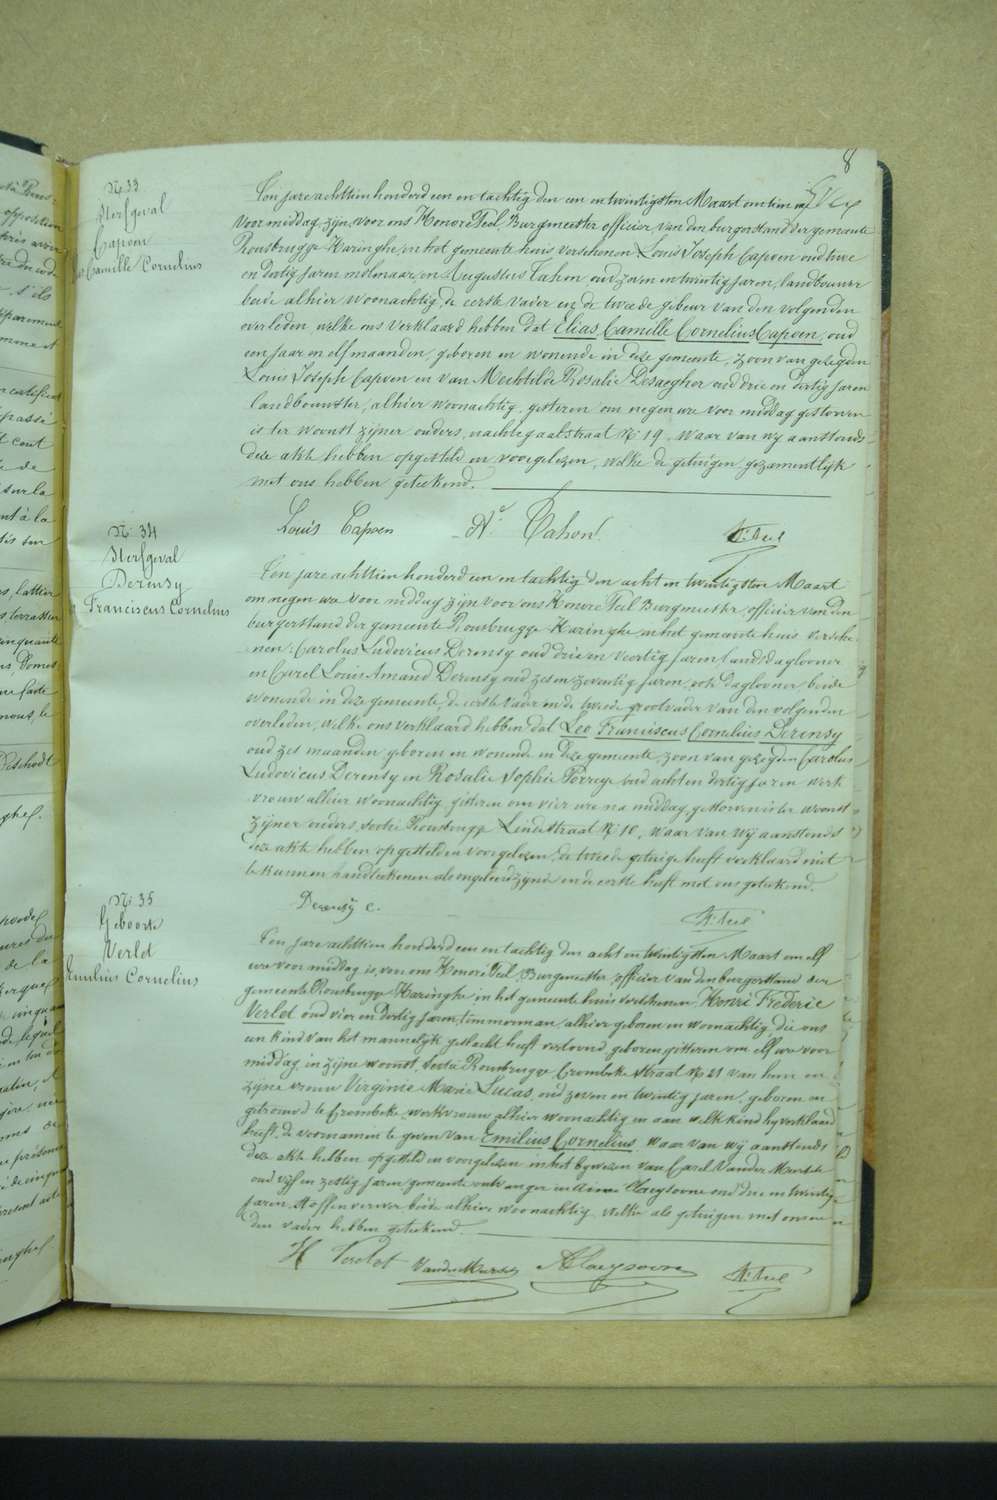 8
N° 33
Sterfgeval
Capoen
Camille Cornelius
Ten jare achttien honderd een en tachtig den een en twintigsten Maart om tien
voor middag, zijn voor ons Honoré Teel, Burgmeester officier van den burgerstand der gemeente
Rousbrugge Haringhe, in het gemeente huis verschenen Louis Joseph Capoen oud twee
en dertig jaren molenaar, en Augustus Tahon oud zeven en twintig jaren, landbouwer
beide alhier woonachtig, de eerste vader en de tweede gebeur van den volgenden
overleden, welke ons verklaard hebben dat Elias Camille Cornelius Capoen, oud
een jaar en elf maanden, geboren en wonende in deze gemeente, zoon van gezegden
Louis Joseph Capoen en van Mechtilde Rosalie Desaegher oud drie en dertig jaren
landbouwster, alhier woonachtig, gisteren om negen ure voor middag gestorven
is ter woonst zijner ouders, nachtegaalstraat N° 19. Waar van wij aanstonds
deze akte hebben opgesteld en voorgelezen, welke de getuigen gezamentlijk
met ons hebben geteekend.
Louis Capoen A.te Tahon H. Teel
N° 34
Sterfgeval
Derensy
Franciscus Cornelius
Ten jare achttien honderd een en tachtig den acht en twintigsten Maart
om negen ure voor middag zijn voor ons Honoré Teel Burgmeester officier van den
burgerstand der gemeente Rousbrugge Haringhe in het gemeente huis versche-
nen: Carolus Ludovicus Derensy oud drie en veertig jaren landsdaglooner
en Carel Louis Amand Derensy oud zes en zeventig jaren, ook daglooner, beide
wonende in deze gemeente, de eerste vader en de tweede grootvader van den volgenden
overleden, welke ons verklaard hebben dat Leo Franciscus Cornelius Derensy
oud zes maanden geboren en wonende in deze gemeente, zoon van gezegden Carolus
Ludovicus Derensy en Rosalie Sophie Perrege oud acht en dertig jaren werk
vrouw alhier woonachtig, gisteren om vier ure na middag, gestorven is ter woonst
zijner ouders, sectie Rousbrugge Lindestraat N° 10, waar van wij aanstonds
deze akte hebben opgesteld en voorgelezen, de tweede getuige heeft verklaard niet
te kunnen handteekenen als ongeleerd zijnde en de eerste heeft met ons geteekend.
Derensÿ c. H. Teel
N° 35
Geboorte
Verlet
Emilius Cornelius
Ten jare achttien honderd een en tachtig den acht en twintigsten Maart om elf
ure voor middag is, voor ons Honoré Teel, Burgmeester officier van den burgerstand der
gemeente Rousbrugge Haringhe in het gemeente huis verschenen Henri Frederic
Verlet oud vier en dertig jaren, timmerman, alhier geboren en woonachtig, die ons
een kind van het mannelijk geslacht heeft vertoond, geboren gisteren om elf ure voor
middag in zijne woonst, sectie Rousbrugge Crombeke straat N° 21 van hem en
zijne vrouw Virginie Marie Lucas, oud zeven en twintig jaren, geboren en
getrouwd te Crombeke, werkvrouw alhier woonachtig en aan welk kind hy verklaard
heeft, de voornamen te geven van Emilius Cornelius, waar van wij aanstonds
deze akte hebben opgesteld en voorgelezen in het bywezen van Carel Vander Meersch
oud vijf en zestig jaren gemeente ontvanger en Aimé Claeysoone oud drie en twintig
jaren, stoffenverwer beide alhier woonachtig, welke als getuigen met ons en
den vader hebben geteekend.
H Verlet VanderMeersch A Claeysoone H. Teel